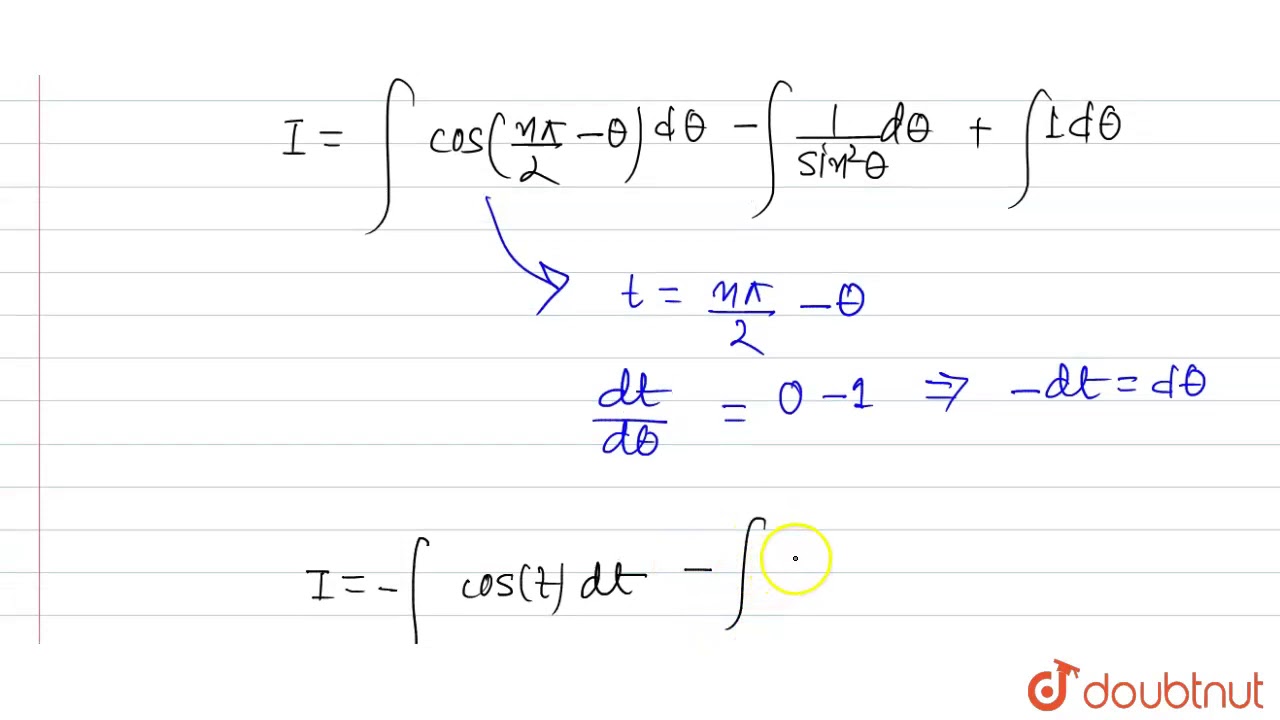 I = ∫ cos(nπ/2 − θ) dθ − ∫ 1/sin²θ dθ + ∫ 1 dθ
t = nπ/2 − θ
dt/dθ = 0 − 1 ⇒ −dt = dθ
I = − ∫ cos(t) dt − ∫
doubtnut